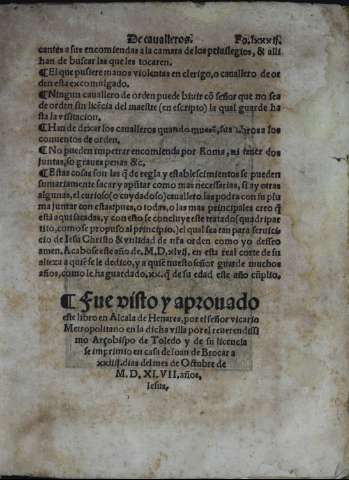 De caualleros. Fo. lxxxij.
cantes a sus encomiendas a la camara de los priuilegios, & alli
han de buscar las que les tocaren.
¶ El que pusiere manos violentas en clerigo, o cauallero de or
den esta excomulgado.
¶ Ningun cauallero de orden puede biuir cõ señor que no sea
de orden sin licẽcia del maestre (en escripto) la qual guarde ha
sta la visitacion.
¶ Han de dexar los caualleros quando muerẽ, sus a los
conuentos de orden.
¶ No pueden impetrar encomienda por Roma, ni tener dos
juntas, so graues penas &c.
¶ Estas cosas son las q̃ de regla y establescimientos se pueden
sumariamente sacar y apũtar como mas necessarias, si ay otras
algunas, el curioso (o cuydadoso) cauallero las podra con su plu
ma juntar con estas apuntadas, o todas, o las mas principales creo q̃
esta aqui sacadas, y con esto se concluye este tratado (quadripar
tito, como se propuso al principio.) el qual sea tan para serui
cio de Iesu Christo & vtilidad de nr̃a orden como yo desseo
amen. Acabose este año de. M.D.xlvj. en esta real corte de su
alteza a quiẽ se le dedico, y a quiẽ nuestro señor guarde muchos
años, como le ha guardado .xx. q̃ de su edad este año cũplio.
¶ Fue visto y aprouado
este libro en Alcala de Henares, por el señor vicario
Metropolitano en la dicha villa por el reuerendissi
mo Arçobispo de Toledo y de su licencia
se imprimio en casa de Ioan de Brocar a
xxiiij. dias del mes de Octubre de
M. D. XL VII. años.
Iesus.